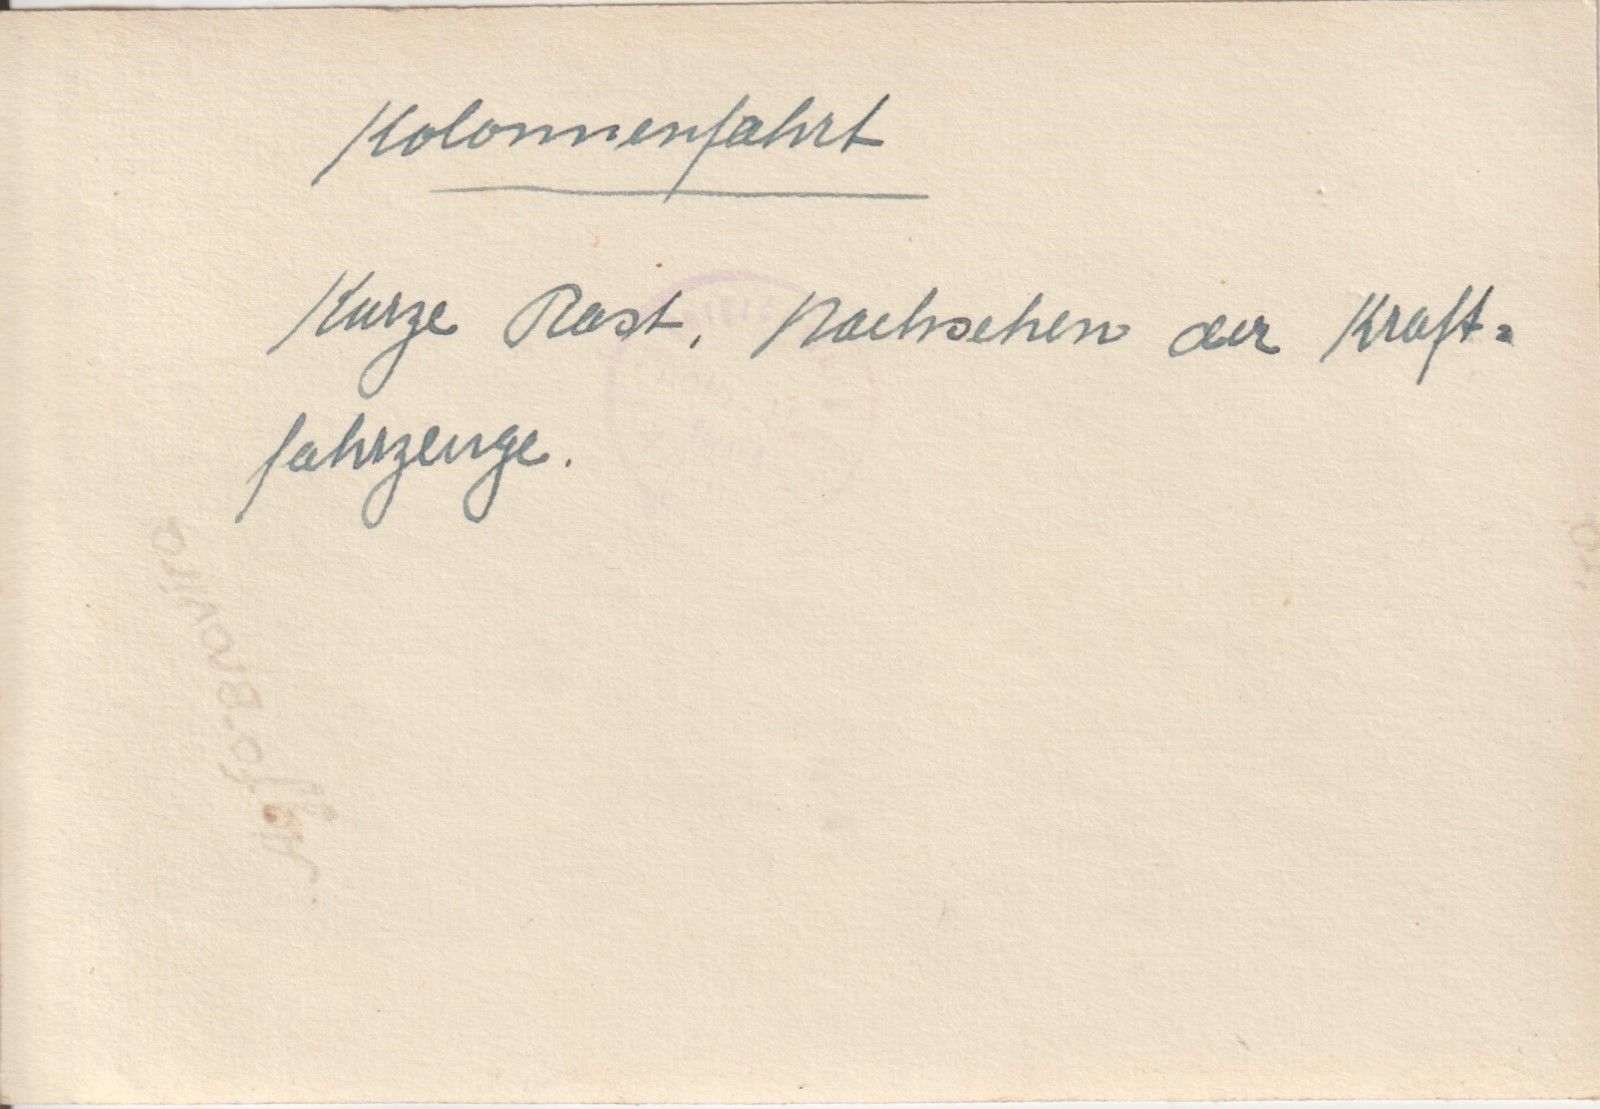 Kolonnenfahrt
Kurze Rast, Nachsehen der Kraft=
fahrzeuge.